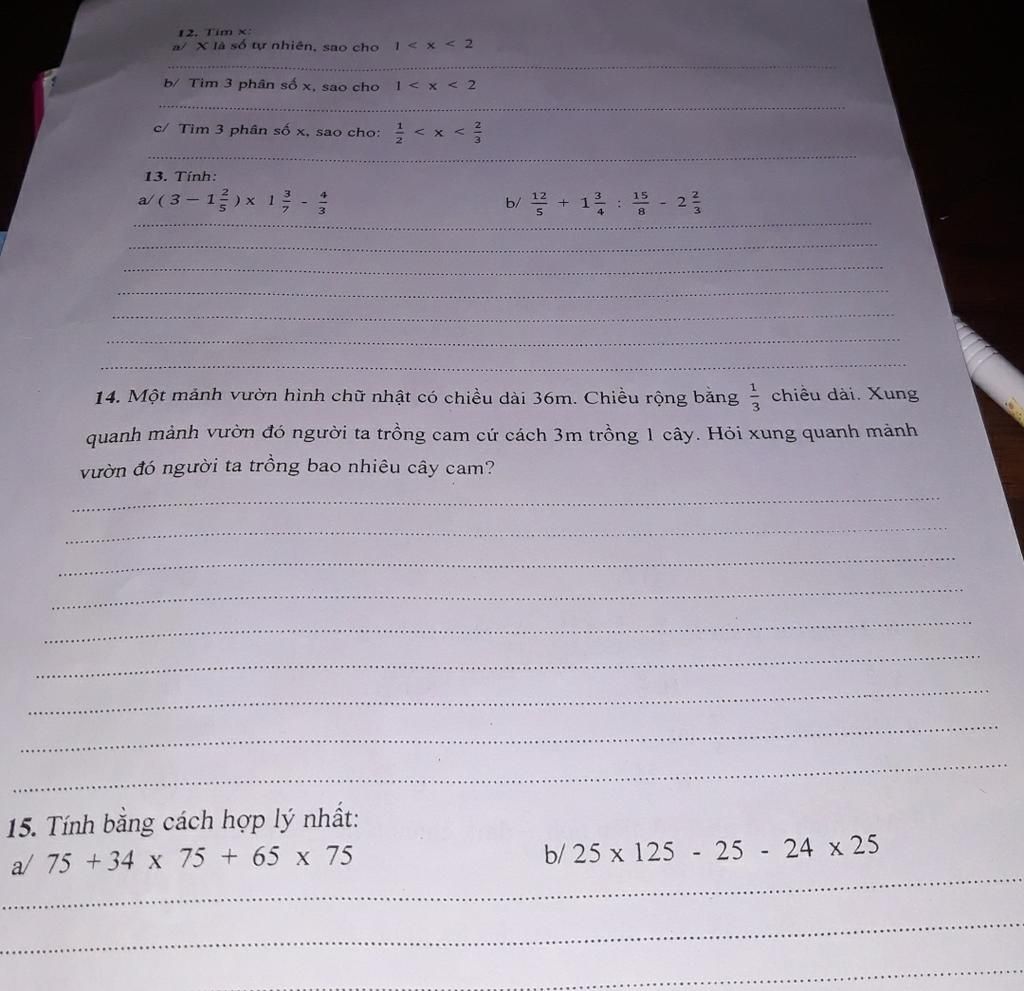 12. Tìm x:
a/ X là số tự nhiên, sao cho 1 < x < 2
b/ Tìm 3 phân số x, sao cho 1 < x < 2
c/ Tìm 3 phân số x, sao cho: 1/2 < x < 2/3
13. Tính:
a/ ( 3 – 1 2/5 ) x 1 3/7 - 4/3 b/ 12/5 + 1 3/4 : 15/8 - 2 2/3
14. Một mảnh vườn hình chữ nhật có chiều dài 36m. Chiều rộng bằng 1/3 chiều dài. Xung
quanh mảnh vườn đó người ta trồng cam cứ cách 3m trồng 1 cây. Hỏi xung quanh mảnh
vườn đó người ta trồng bao nhiêu cây cam?
15. Tính bằng cách hợp lý nhất:
a/ 75 + 34 x 75 + 65 x 75 b/ 25 x 125 - 25 - 24 x 25